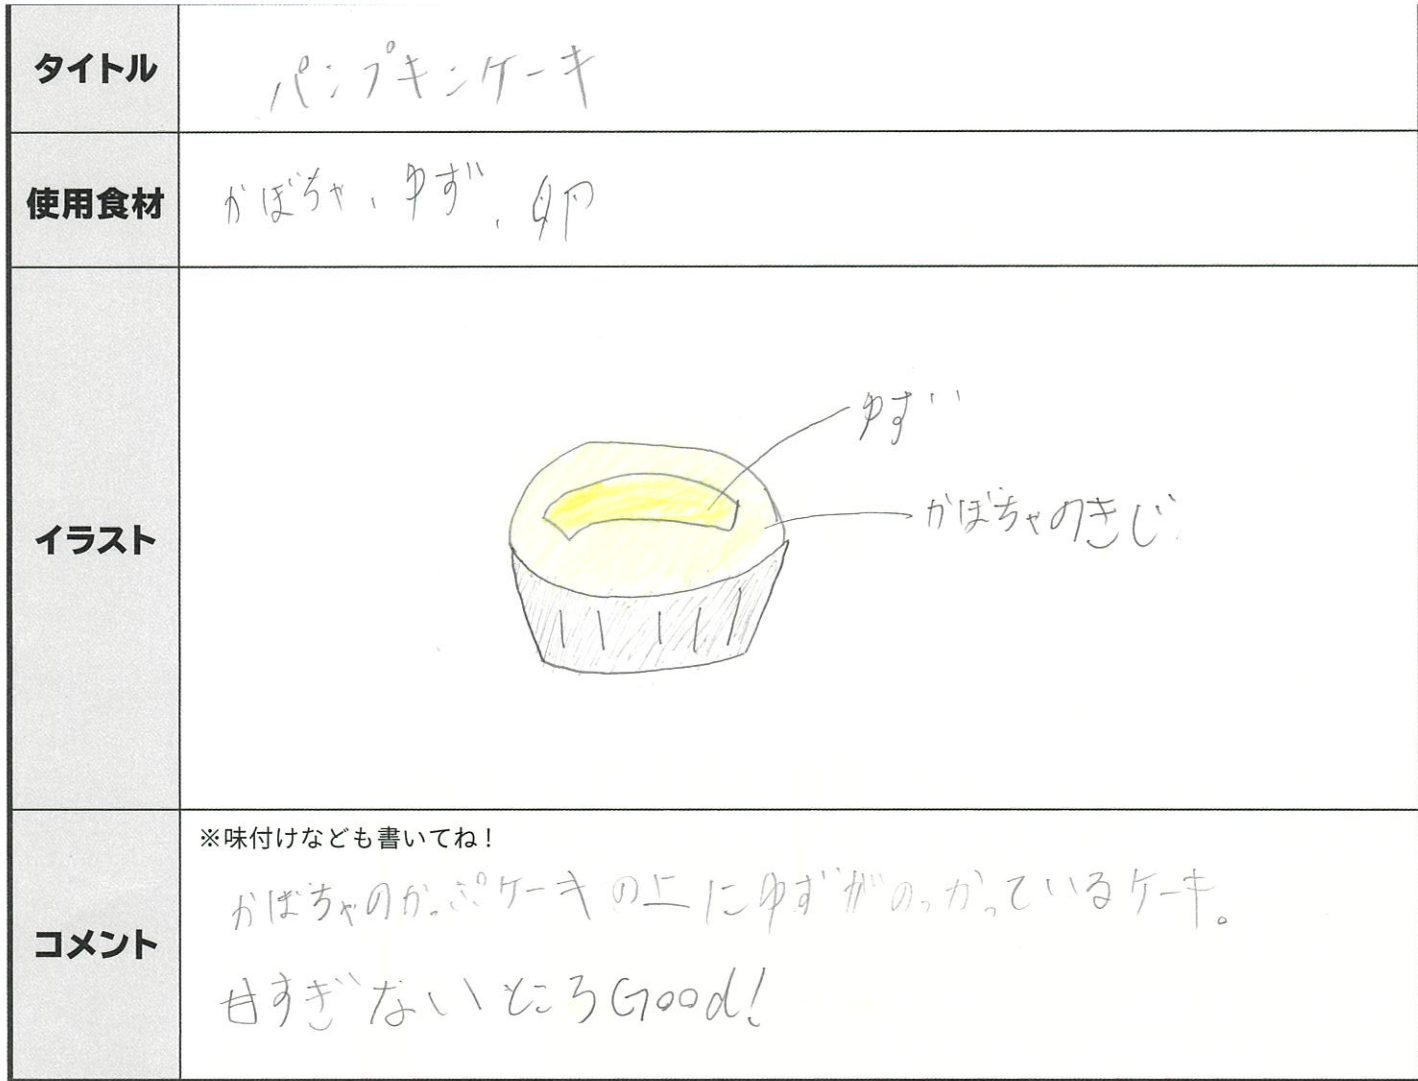 タイトル
パンプキンケーキ
使用食材
かぼちゃ、ゆず、卵
イラスト
ゆず
かぼちゃのきじ
コメント
※味付けなども書いてね!
かぼちゃのかっぷケーキの上にゆずがのっかっているケーキ。
甘すぎないところGood!